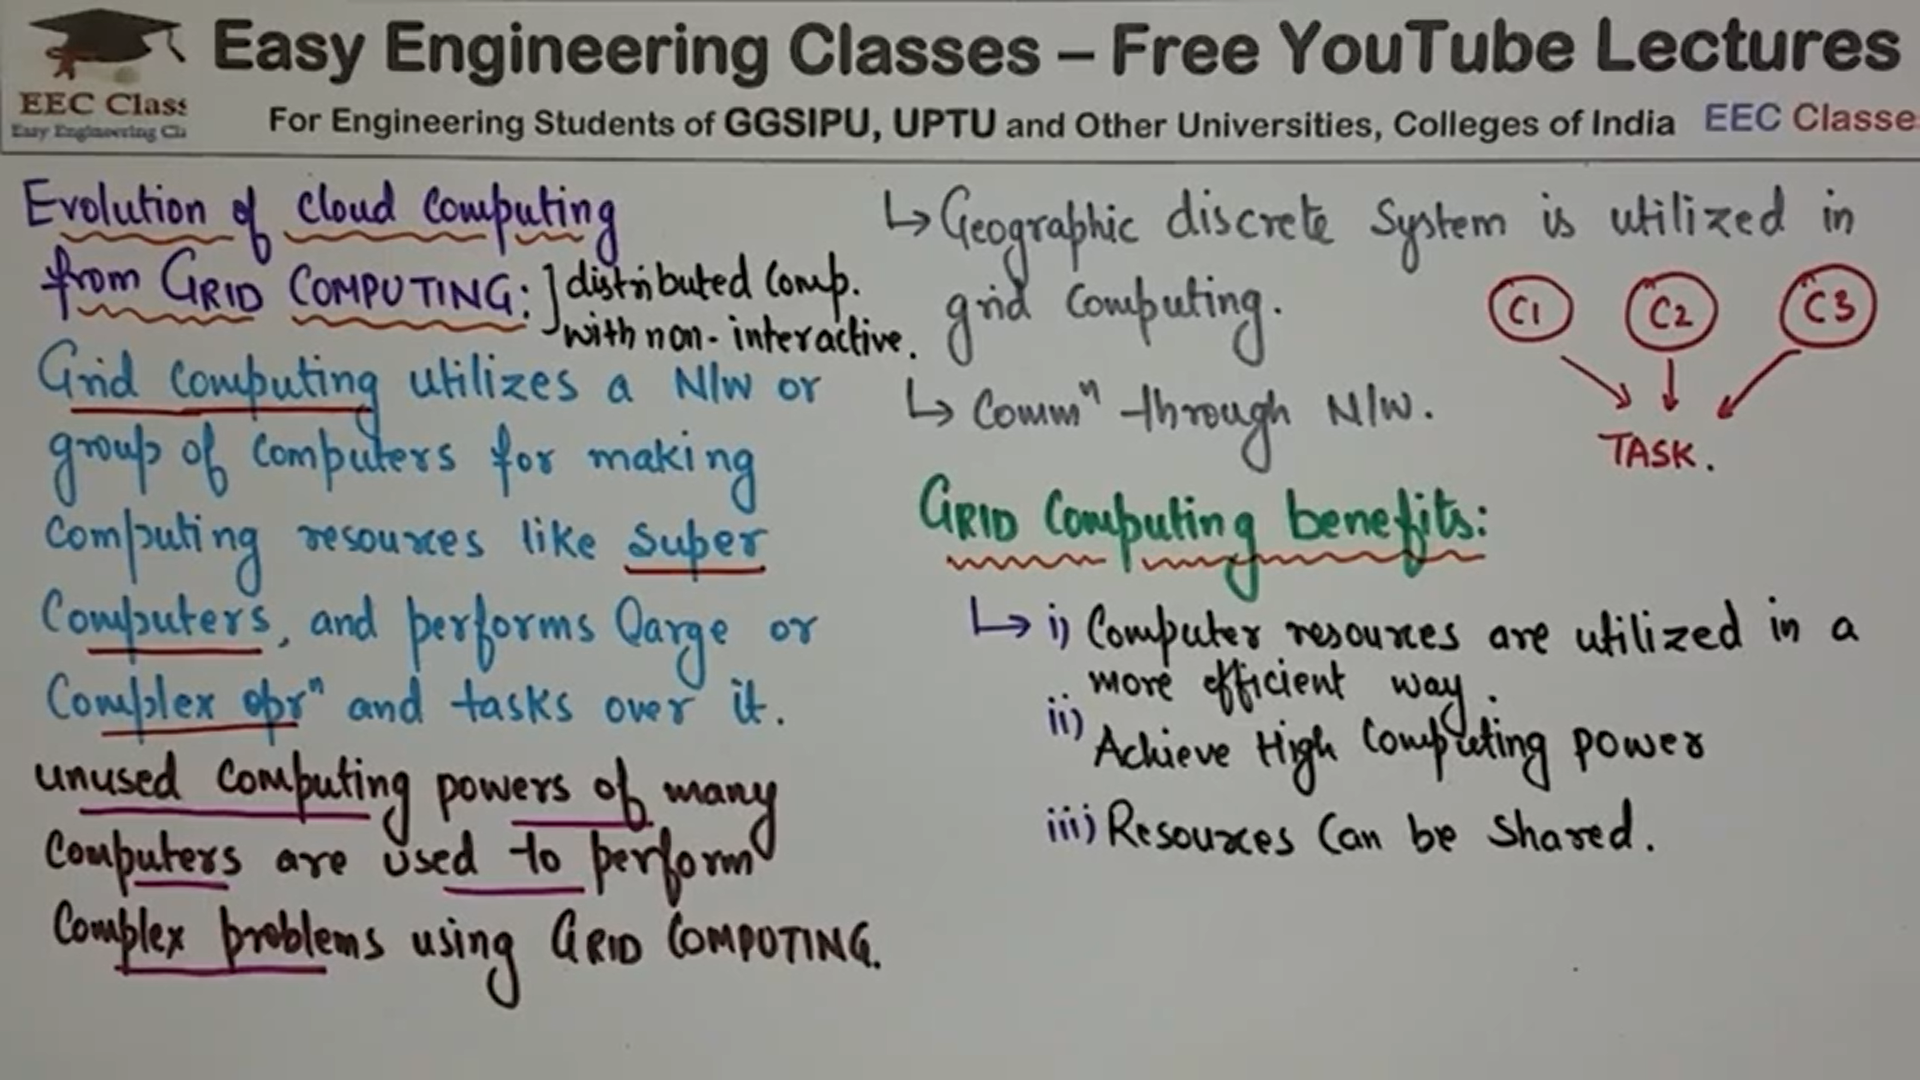 Easy Engineering Classes – Free YouTube Lectures
EEC Class
Easy Engineering Cla
For Engineering Students of GGSIPU, UPTU and Other Universities, Colleges of India EEC Classe
Evolution of Cloud Computing
from GRID COMPUTING:
distributed Comp.
with non-interactive.
Grid Computing utilizes a N/W or
group of Computers for making
Computing resources like Super
Computers, and performs large or
Complex oprⁿ and tasks over it.
unused Computing powers of many
Computers are used to perform
Complex problems using GRID COMPUTING.
↳ Geographic discrete System is utilized in
grid Computing.
C1 C2 C3
↳ Commⁿ through N/W.
TASK.
GRID Computing benefits:
↳ i) Computer resources are utilized in a
more efficient way.
ii) Achieve High Computing power
iii) Resources Can be Shared.